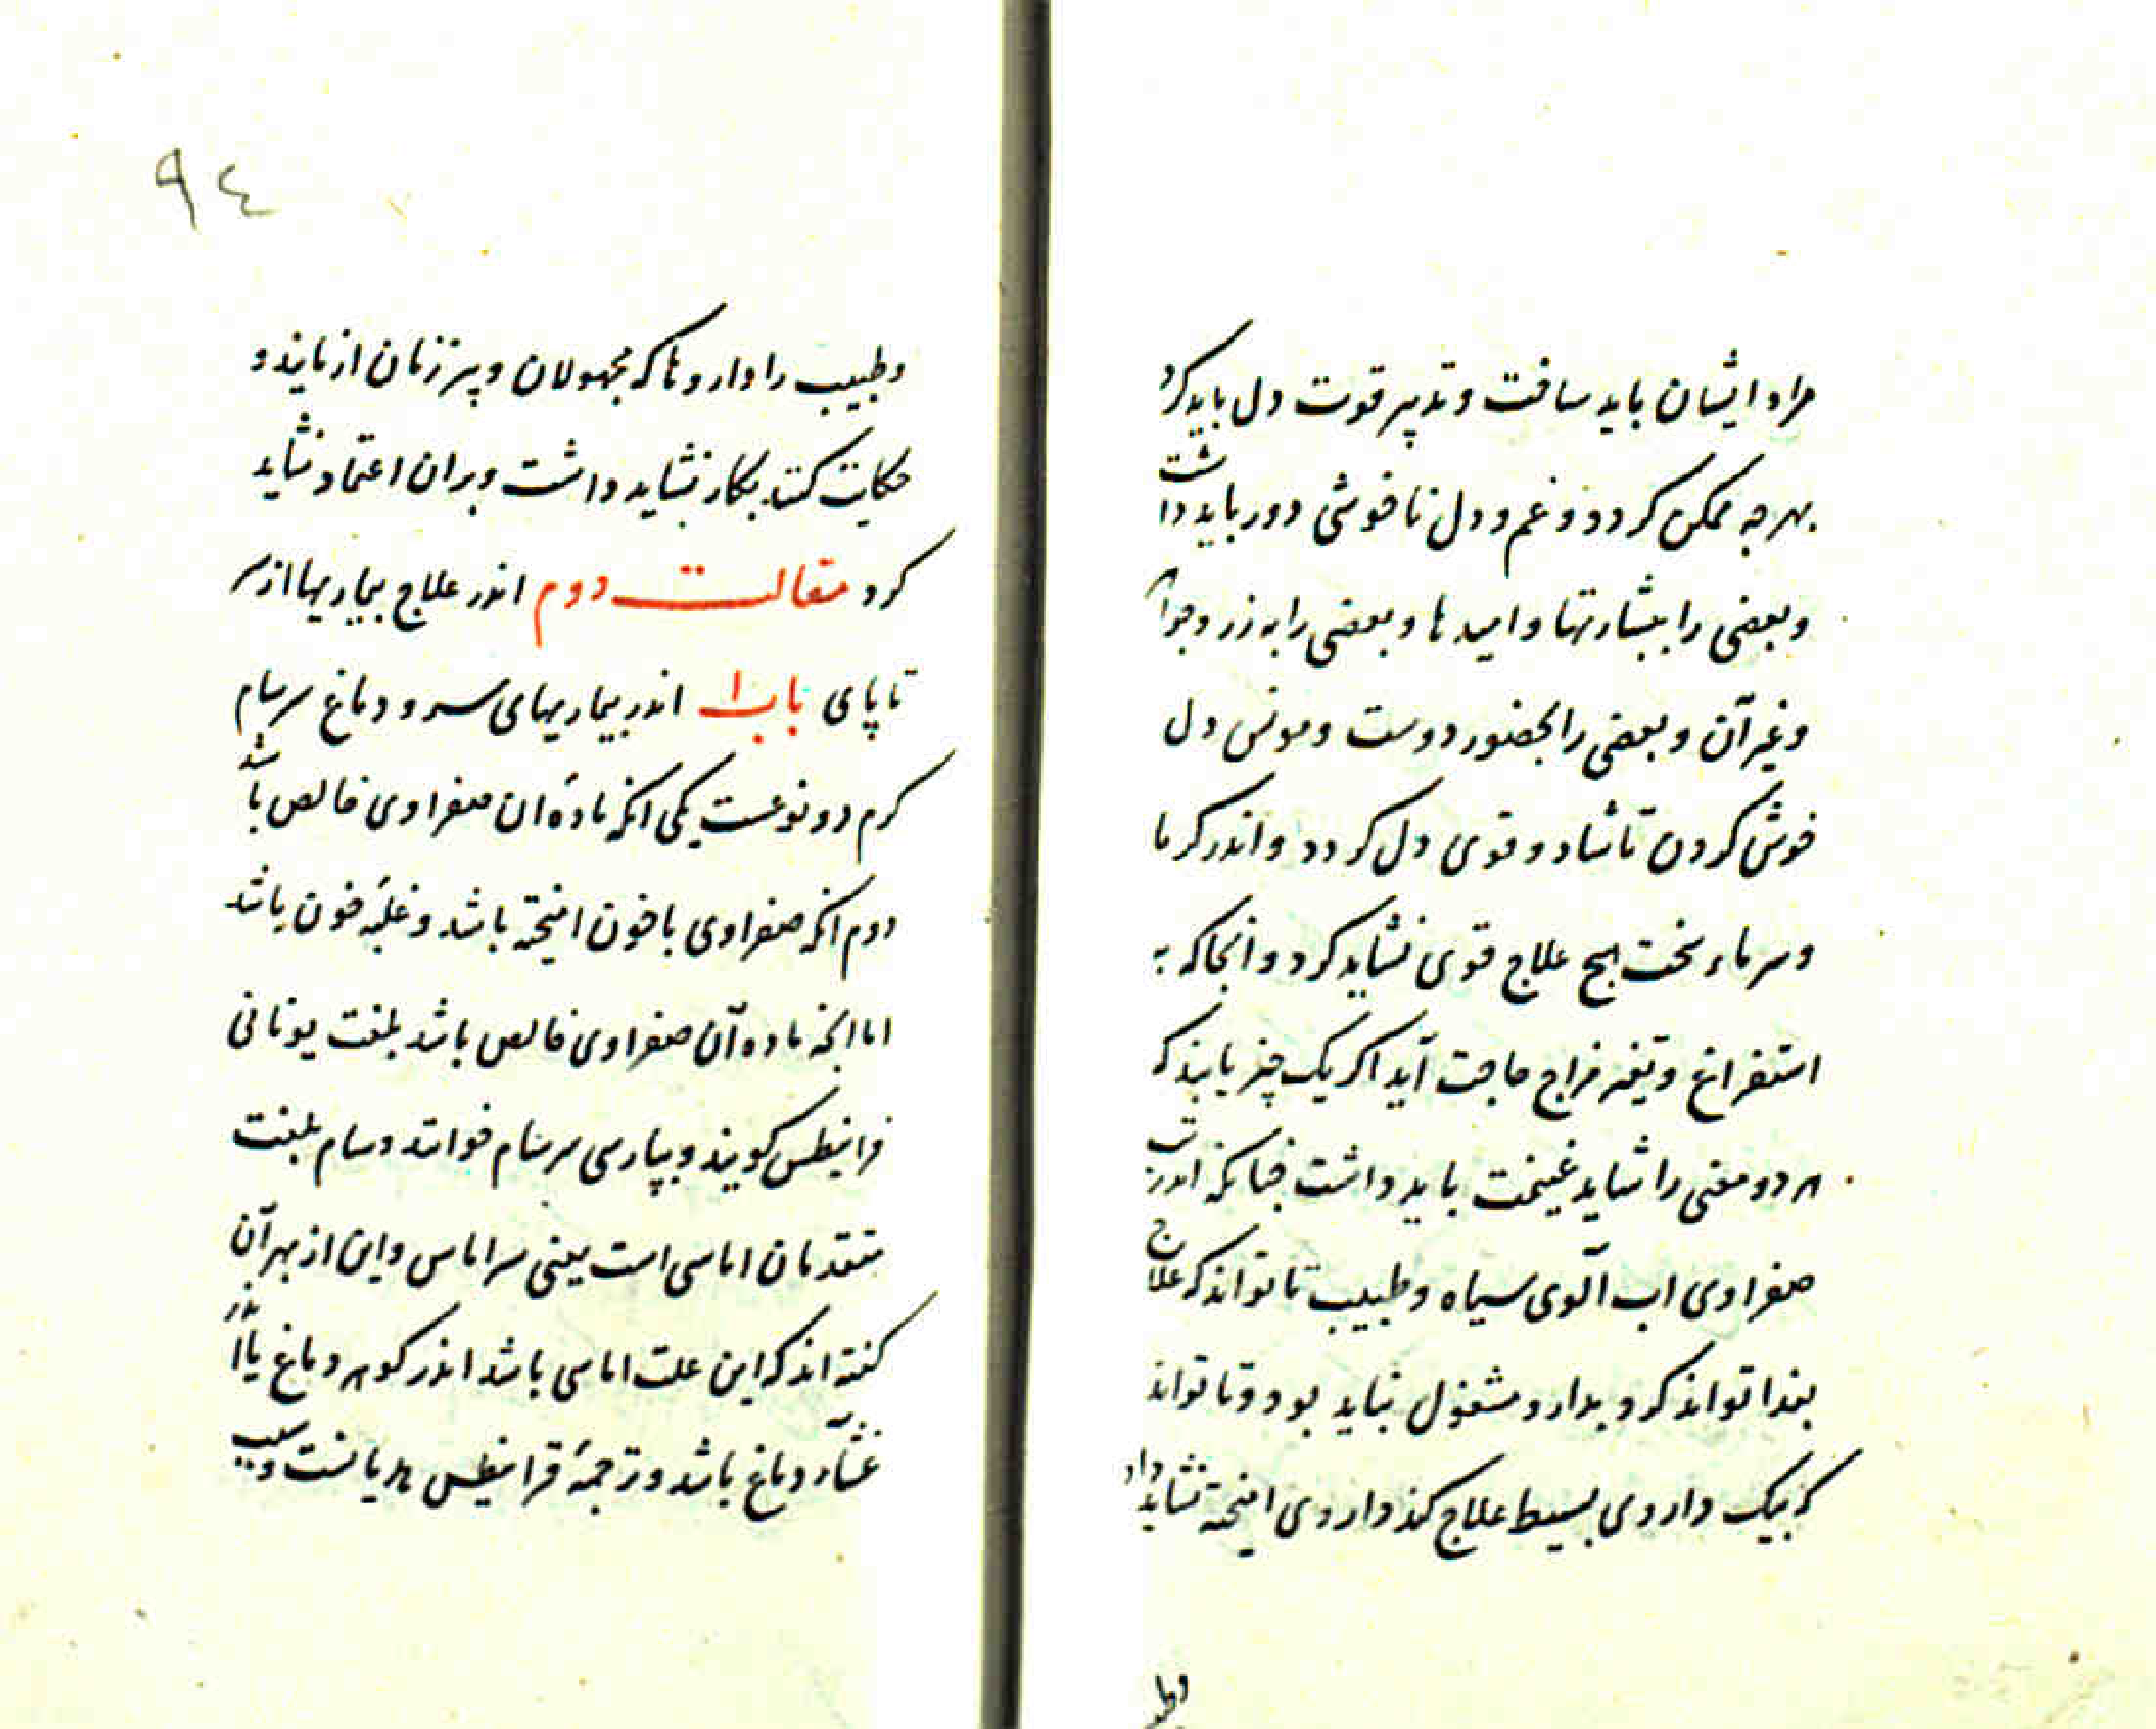 مراد ایشان باید ساخت و تدبیر قوت دل باید کرد
بهرجه ممکن کردد و غم و دل ناخوشی دور باید داشت
و بعضی را ببشارتها و امیدها و بعضی را به زر و جواهر
و غیر آن و بعضی را بحضور دوست و مونس دل
خوش کردن تا شاد و قوی دل کردد و اندر کرما
و سرماء سخت هیج علاج قوی نشاید کرد و انجا که به
استفراغ و تغیر مزاج حاجت آید اکر یک چیز یابند که
هر دو معنی را شاید غنیمت باید داشت جنانکه اندر تب
صفراوی اب آلوی سیاه و طبیب تا تواند که علاج
بغذا تواند کرد بدارو مشغول نباید بود و تا تواند
که بیک داروی بسیط علاج کند داروی امیخته نشاید داد
وطبیب
٩٤
و طبیب را داروها که مجهولان و پیر زنان ازمایند و
حکایت کنند بکار نشاید داشت و بران اعتماد نشاید
کرد مقالت دوم اندر علاج بیماریها از سر
تا پای باب ١ اندر بیماریهای سر و دماغ سرسام
کرم دو نوعست یکی انکه مادهٔ ان صفراوی خالص باشد
دوم انکه صفراوی با خون امیخته باشد و غلبهٔ خون باشد
اما انکه ماده آن صفراوی خالص باشد بلغت یونانی
قرانیطس کویند و بپارسی سرسام خوانند و سام بلغت
متقدمان اماسی است یعنی سر اماس و این از بهر آن
کفته اند که این علت اماسی باشد اندر کوهر دماغ یا اندر
غشاء دماغ باشد و ترجمهٔ قرانیطس هذیانست و سبب